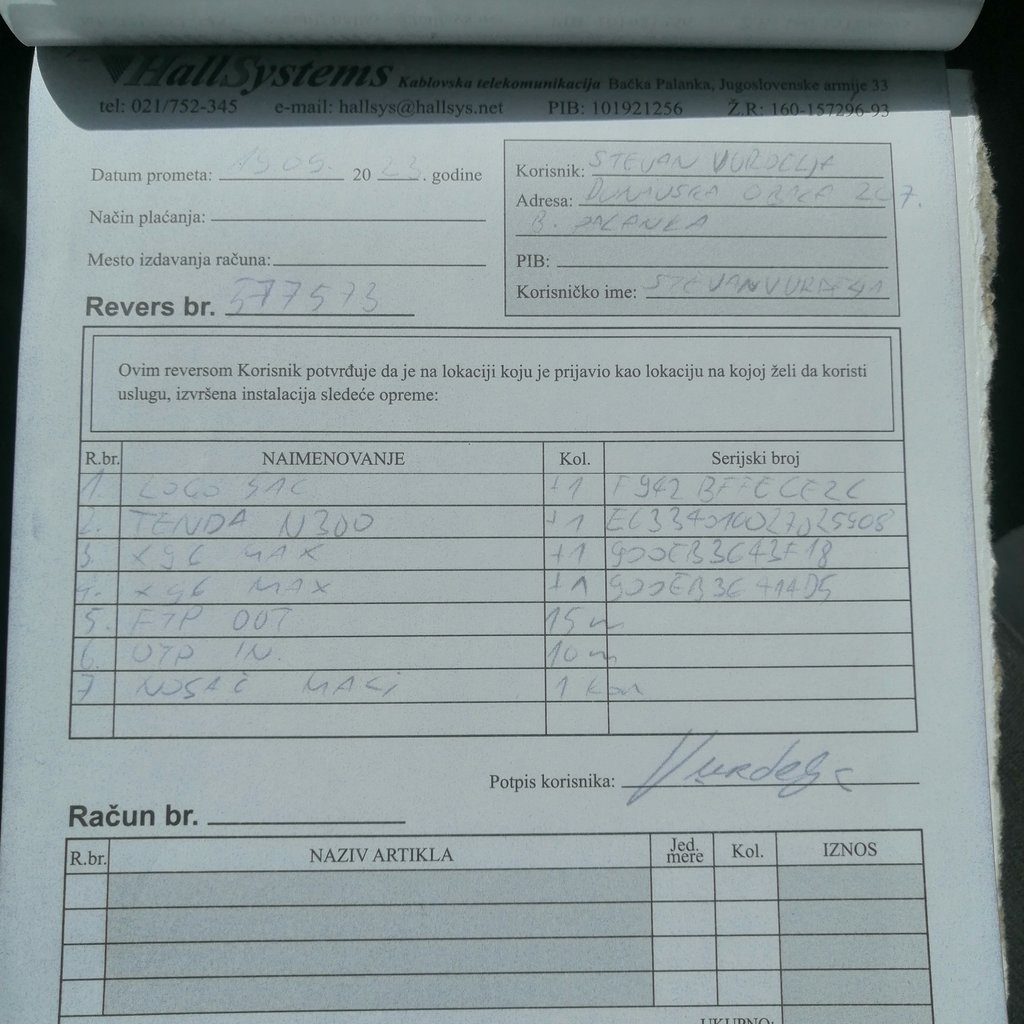 HallSystems Kablovska telekomunikacija Bačka Palanka, Jugoslovenske armije 33
tel: 021/752-345 e-mail: hallsys@hallsys.net PIB: 101921256 Ž.R: 160-157296-93
Datum prometa: 19.09. 20 23. godine
Način plaćanja:
Mesto izdavanja računa:
Revers br. 577573
Korisnik: STEVAN VURDELJA
Adresa: DUNAVSKA OBALA
B. PALANKA
PIB:
Korisničko ime:
Ovim reversom Korisnik potvrđuje da je na lokaciji koju je prijavio kao lokaciju na kojoj želi da koristi
uslugu, izvršena instalacija sledeće opreme:
R.br. NAIMENOVANJE Kol. Serijski broj
1. LOCO 5AC +1 F942BFFECE2C
2. TENDA N300 +1
3. X96 MAX +1 900EB3C43F18
4. X96 MAX +1
5. FTP OUT 15 m
6. UTP IN. 10 m
7 NOSAČ MALI 1 kom
Potpis korisnika:
Račun br.
R.br. NAZIV ARTIKLA Jed. mere Kol. IZNOS
UKUPNO: